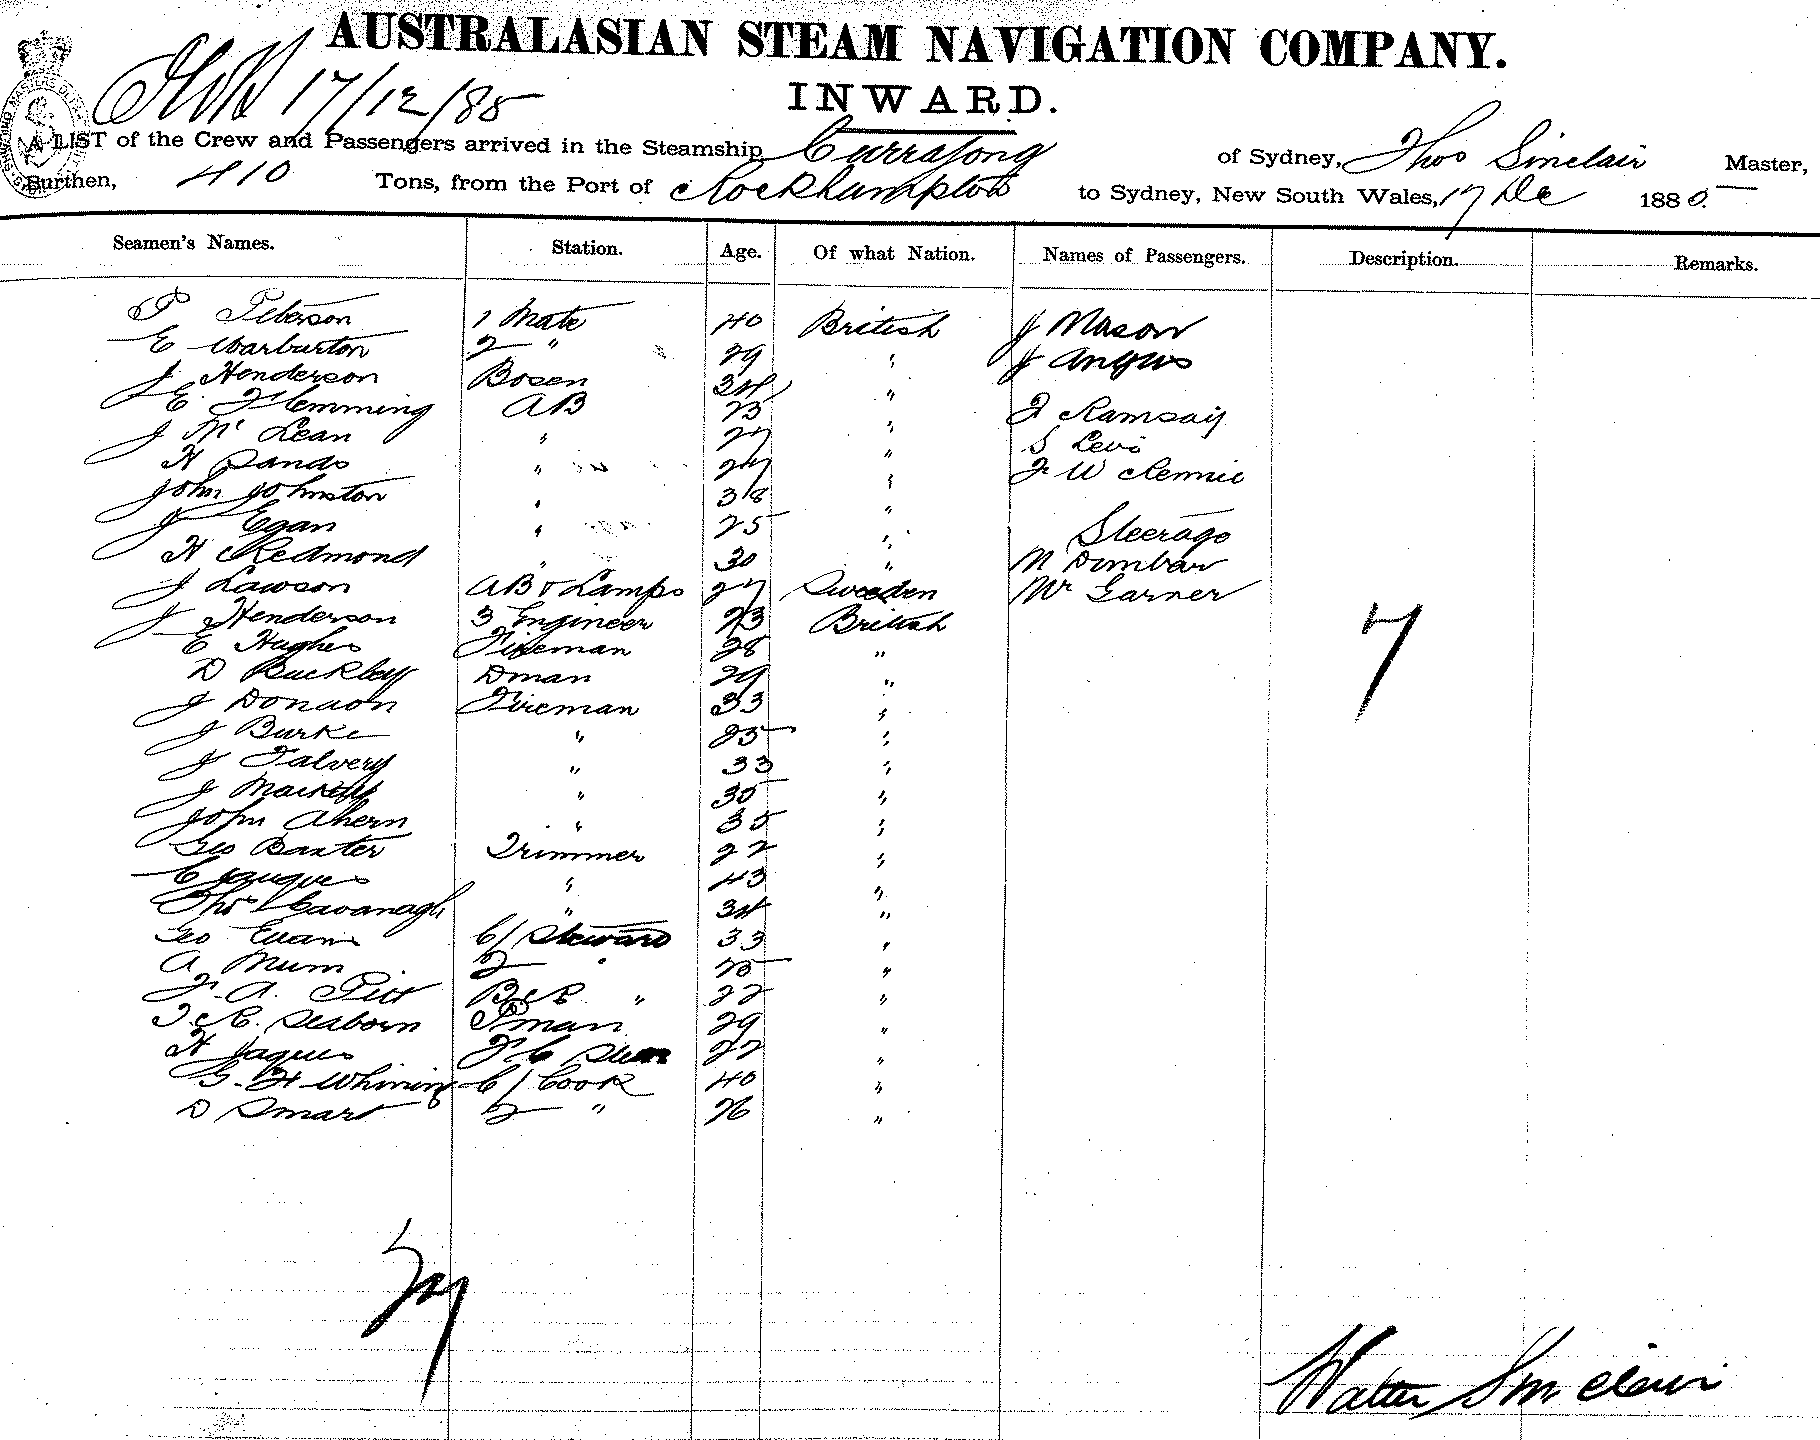 AUSTRALASIAN STEAM NAVIGATION COMPANY.
17/12/85
INWARD.
A LIST of the Crew and Passengers arrived in the Steamship Currajong of Sydney, Thos Sinclair Master,
Burthen, 410 Tons, from the Port of Rockhampton to Sydney, New South Wales, 17 De 1885
Seamen's Names. Station. Age. Of what Nation. Names of Passengers. Description. Remarks.
P Peterson 1 Mate 40 British J Mason
E Warburton 2 " 29 " J Angus
J Henderson Bosen 34 "
E. Flemming AB 23 " F Ramsay
J Mc Lean " 27 " S Levi
H Sands " 27 " F W Rennie
John Johnston " 38 "
J Egan " 25 " Steerage
H Redmond " 30 " M Dunbar
J Lawson AB & Lamps 27 Sweeden Mr Garner
J Henderson 3 Engineer 23 British
E Hughes Fireman 28 " 7
D Buckley Dman 29 "
J Donaon Fireman 33 "
J Burke " 25 "
J Falvery " 33 "
J " 35 "
John Ahern " 35 "
Geo Baxter Trimmer 22 "
C Jaques " 43 "
Thos Cavanagh " 34 "
Geo Evans C/ Steward 33 "
A Mum 2 " 25 "
F. A. Pitt B & R " 22 "
T. R. Seaborn Pman 29 "
H Jaques F C 22 "
G. H Whining C/ Cook 40 "
D Smart 2 " 26 "
Walter Sinclair